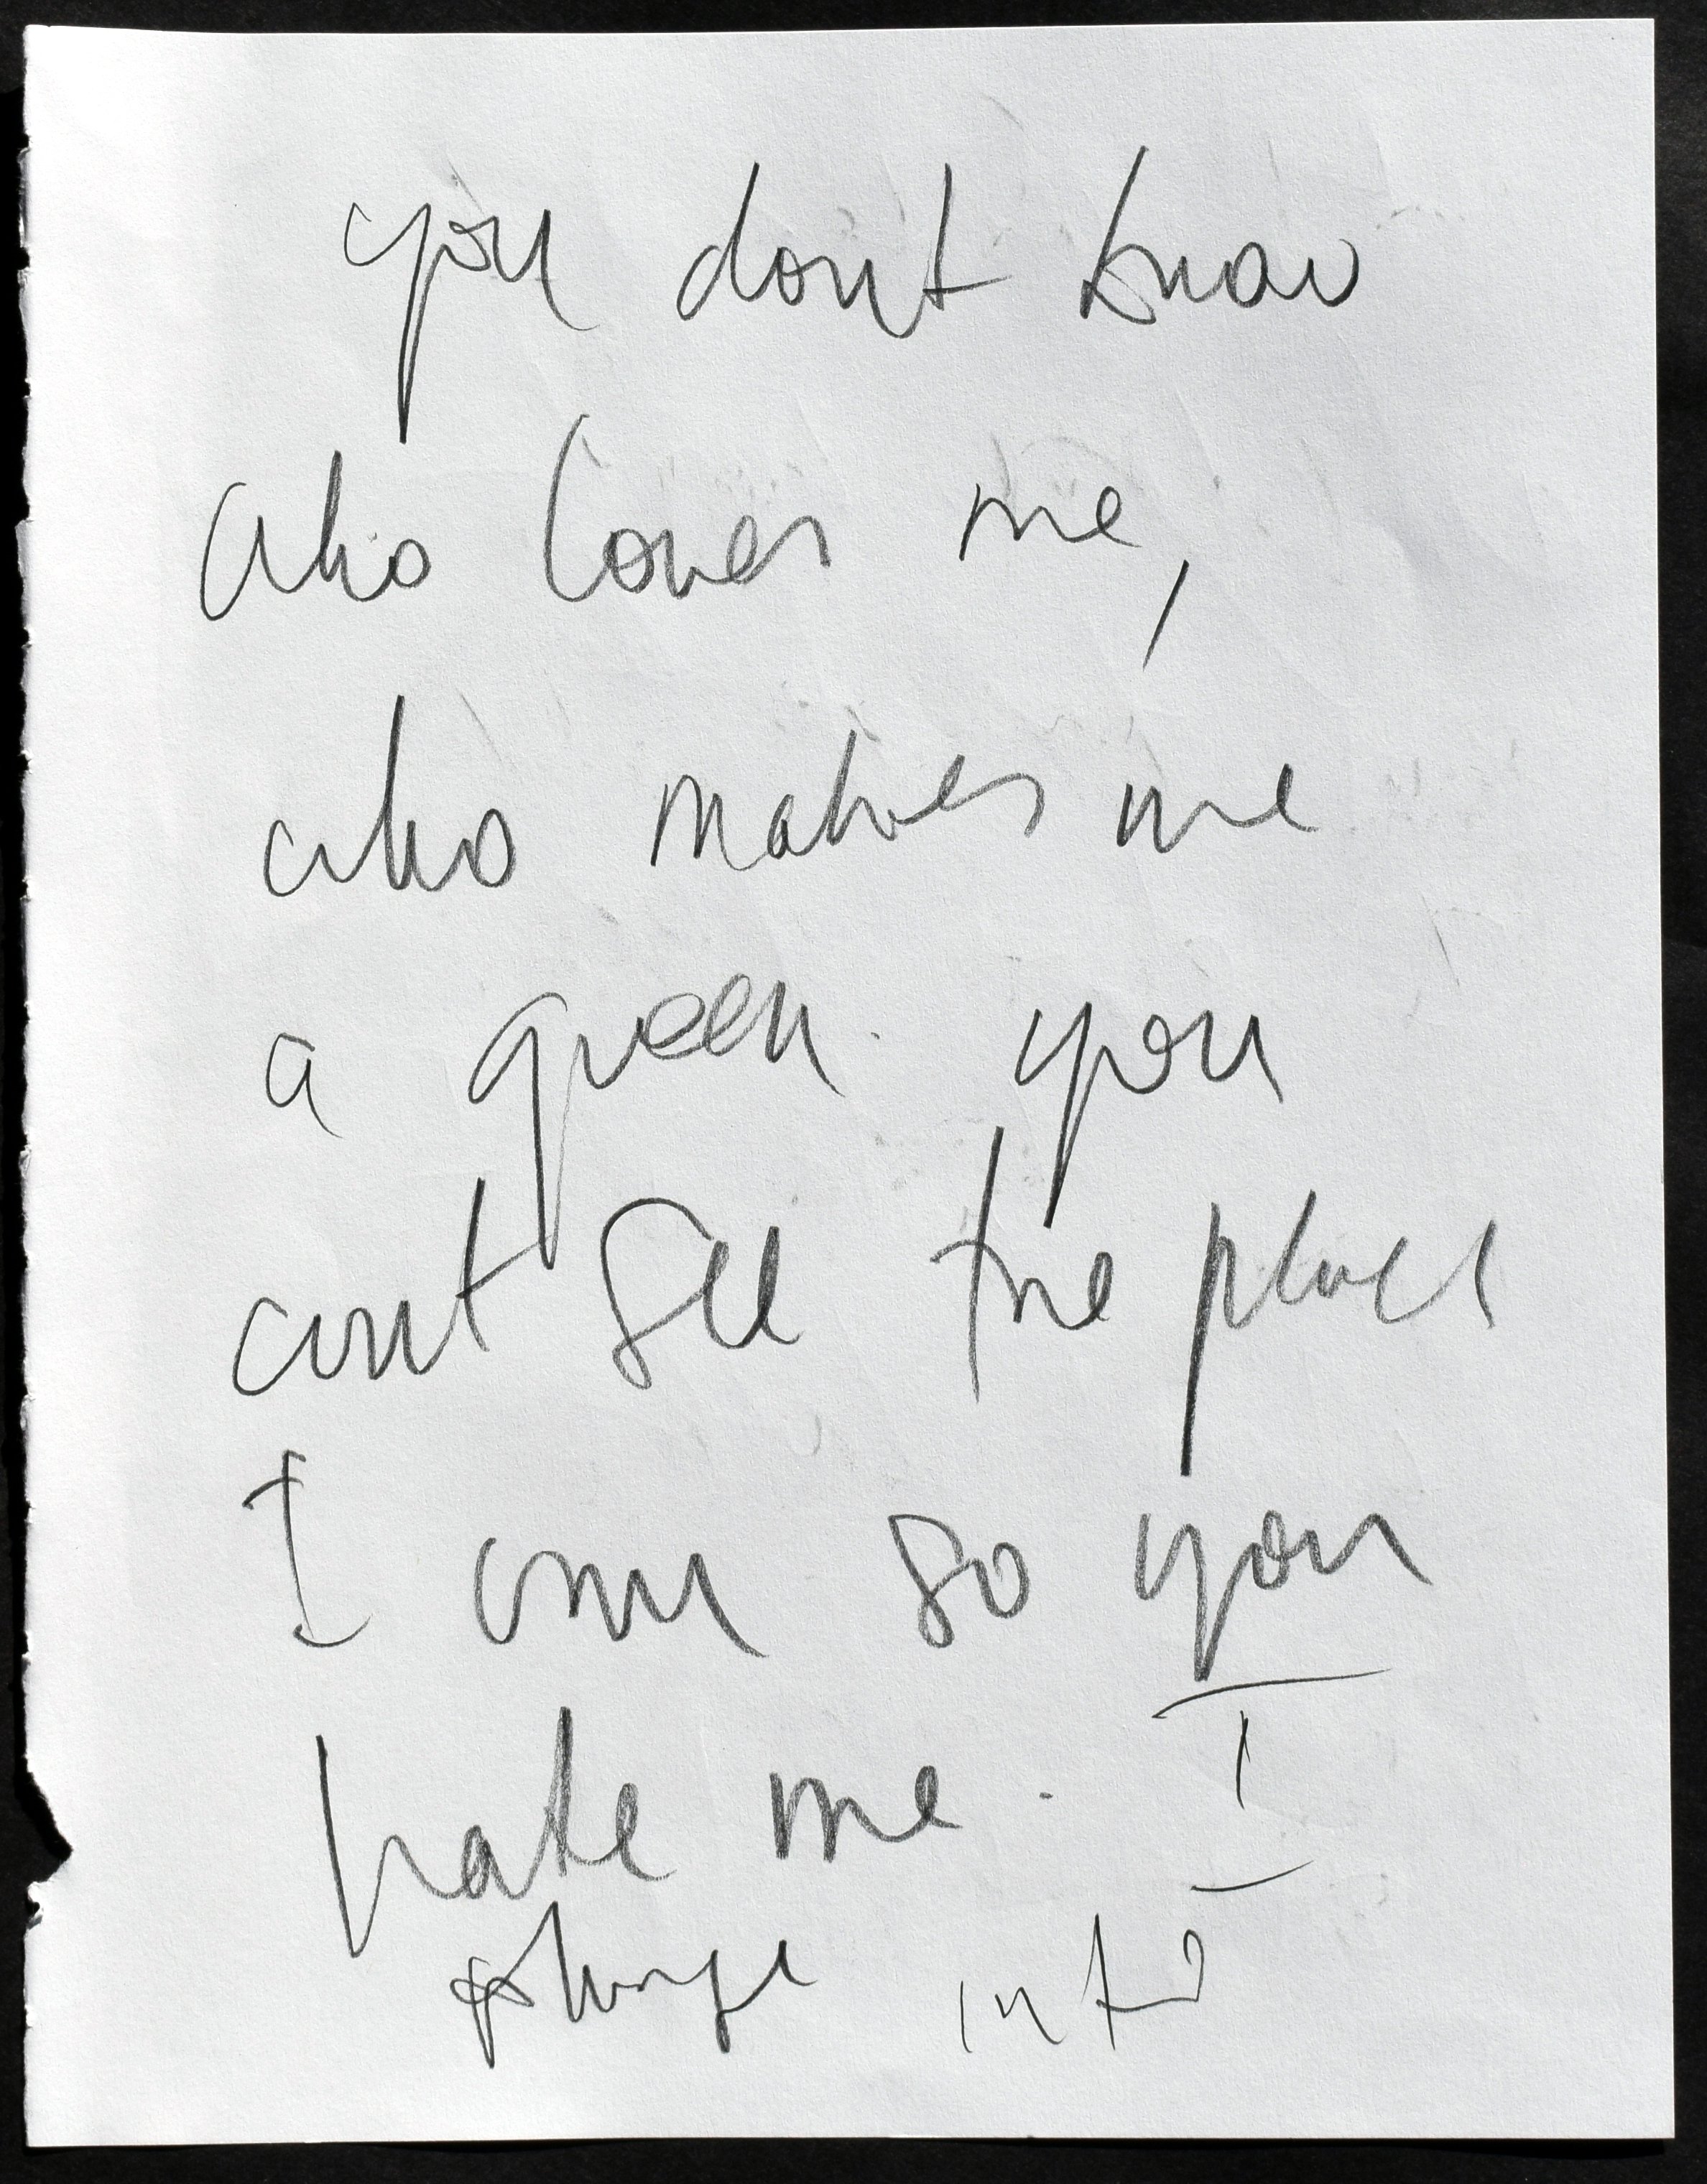 you dont know
who loves me,
who makes me
a queen. you
cant see the place
I am so you
hate me. I
plunge into